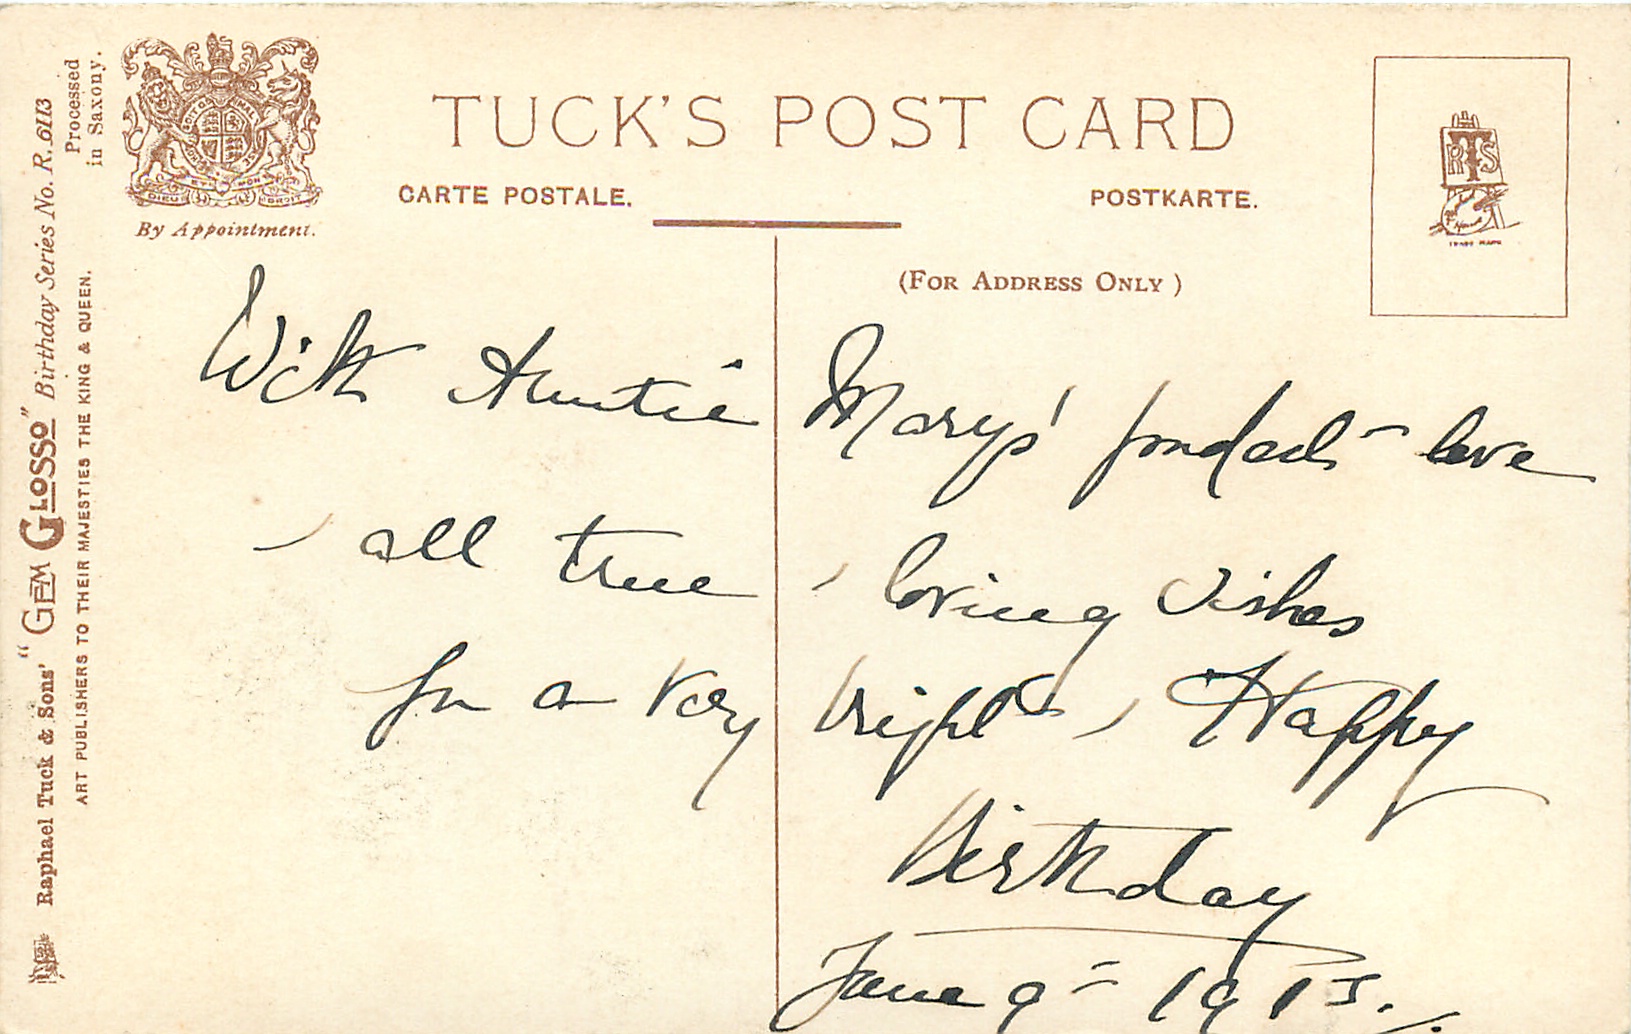 TUCK'S POST CARD
CARTE POSTALE.
POSTKARTE.
(FOR ADDRESS ONLY)
By Appointment.
DIEU ET MON DROIT
RTS
TRADE MARK
Processed
in Saxony.
Raphael Tuck & Sons' "GEM GLOSSO" Birthday Series No. R. 6113
ART PUBLISHERS TO THEIR MAJESTIES THE KING & QUEEN.
With Auntie Mary's' fondest love
all true loving wishes
for a very bright, Happy
Birthday
June 9 = 1913.